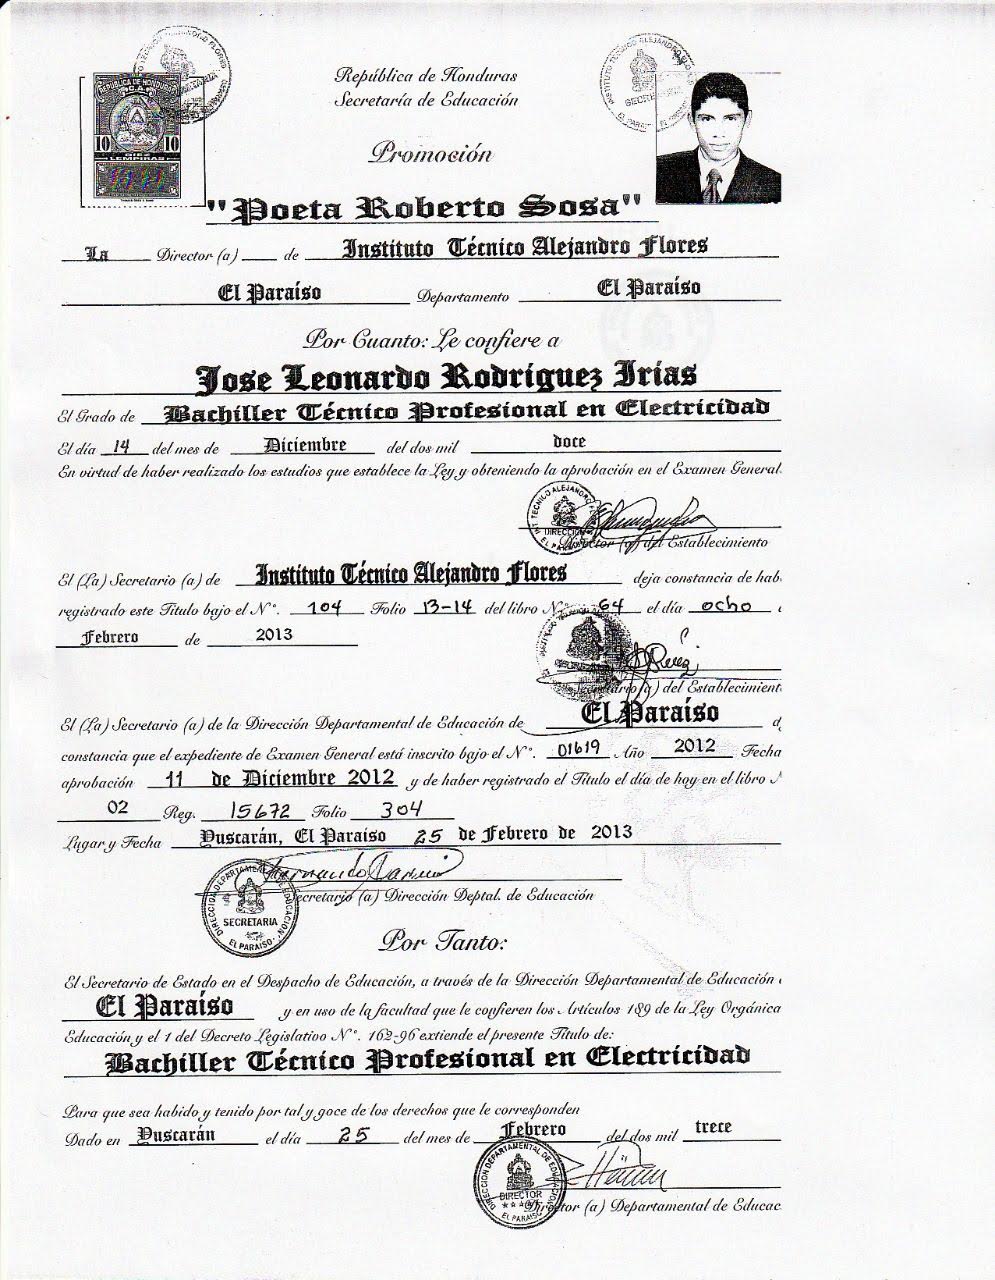 República de Honduras
Secretaría de Educación
Promoción
REPUBLICA DE HONDURAS
10 10
DIEZ
LEMPIRAS
"Poeta Roberto Sosa"
La Director (a) de Instituto Técnico Alejandro Flores
El Paraíso Departamento El Paraíso
Por Cuanto: Le confiere a
Jose Leonardo Rodríguez Irias
El Grado de Bachiller Técnico Profesional en Electricidad
El día 14 del mes de Diciembre del dos mil doce
En virtud de haber realizado los estudios que establece la Ley y obteniendo la aprobación en el Examen General.
Director (a) del Establecimiento
El (La) Secretario (a) de Instituto Técnico Alejandro Flores deja constancia de hab
registrado este Título bajo el N°. 104 Folio 13-14 del libro N° 64 el día ocho
Febrero de 2013
Secretario (a) del Establecimient
El (La) Secretario (a) de la Dirección Departamental de Educación de El Paraíso d
constancia que el expediente de Examen General está inscrito bajo el N°. 01619 Año 2012 Fecha
aprobación 11 de Diciembre 2012 y de haber registrado el Título el día de hoy en el libro
02 Reg. 15672 Folio 304
Lugar y Fecha Yuscarán, El Paraíso 25 de Febrero de 2013
Secretario (a) Dirección Deptal. de Educación
DIRECCION DEPARTAMENTAL DE EDUCACION
SECRETARIA
EL PARAISO
Por Tanto:
El Secretario de Estado en el Despacho de Educación, a través de la Dirección Departamental de Educación
El Paraíso y en uso de la facultad que le confieren los Artículos 189 de la Ley Orgánica
Educación y el 1 del Decreto Legislativo N°. 162-96 extiende el presente Título de:
Bachiller Técnico Profesional en Electricidad
Para que sea habido y tenido por tal y goce de los derechos que le corresponden
Dado en Yuscarán el día 25 del mes de Febrero del dos mil trece
DIRECCION DEPARTAMENTAL DE EDUCACION
DIRECTOR
EL PARAISO
Director (a) Departamental de Educac